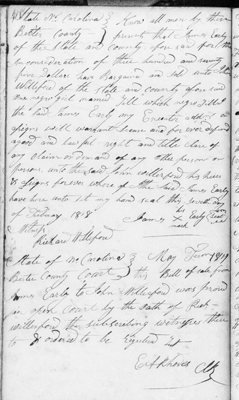 State No Carolina } Know all men by these
Bertie County } presents that James Early
of the State and County for
in consideration of three hundred and seventy
five Dollars have Bargained and sold unto John
Williford of the State and County aforesaid
one negro girl named Jill which negro Jill
the said James Early my Executors
assigns will warrant secure and forever defend
good and lawful right and title clear of
any claim or demand of any other person or
persons unto the said John Williford his heirs
& assigns forever where of I the said James Early
have here unto set my hand & seal this seventh day
of Febuary 1818
James his mark Early Seal
Hezekiah Williford
State of No Carolina } May Term 1819
Bertie County Court } this Bill of sale from
James Early to John Williford was proved
in open Court by the oath of
Williford the subscribing witness there
to & ordered to be Registed
E A Rhodes Clk